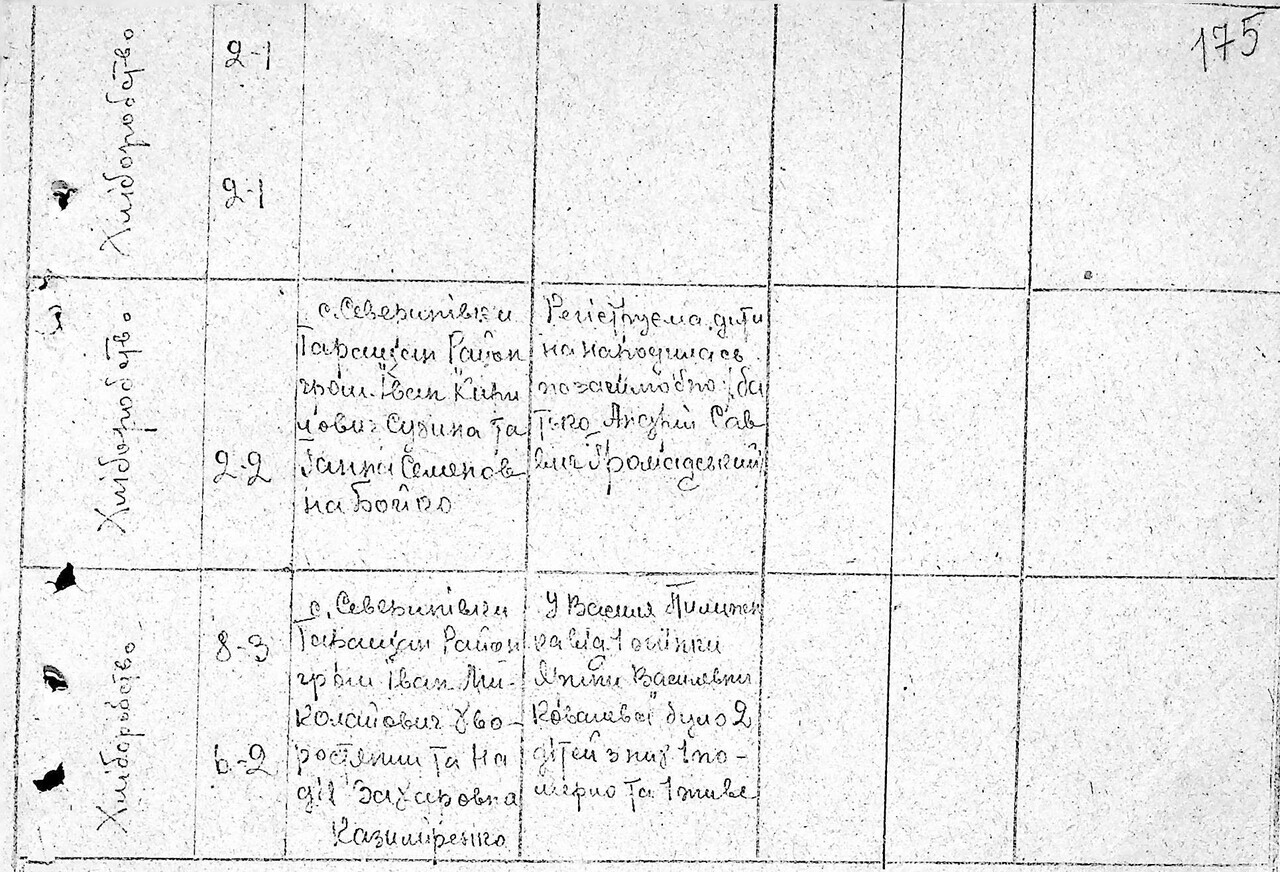 175
Хліборобство
2-1
2-1
Хліборобство
2-2
с. Северинівки
Таращан Район
гром. Іван Кири
лович Судина та
Ганна Семенов
на Бойко
Регіструєма дити
на находилась
позашлюбно; ба
тько Андрій Сав
вич Громадський
Хліборобство
8-3
6-2
с. Северинівки
Таращан Район
гром Іван Ми-
колайович
та На
дія Захаровна
Казиміренко
У Василя
ка від 1 жінки
Василевни
Ковалевої було 2
дітей з них 1 по-
мерло та 1 живе